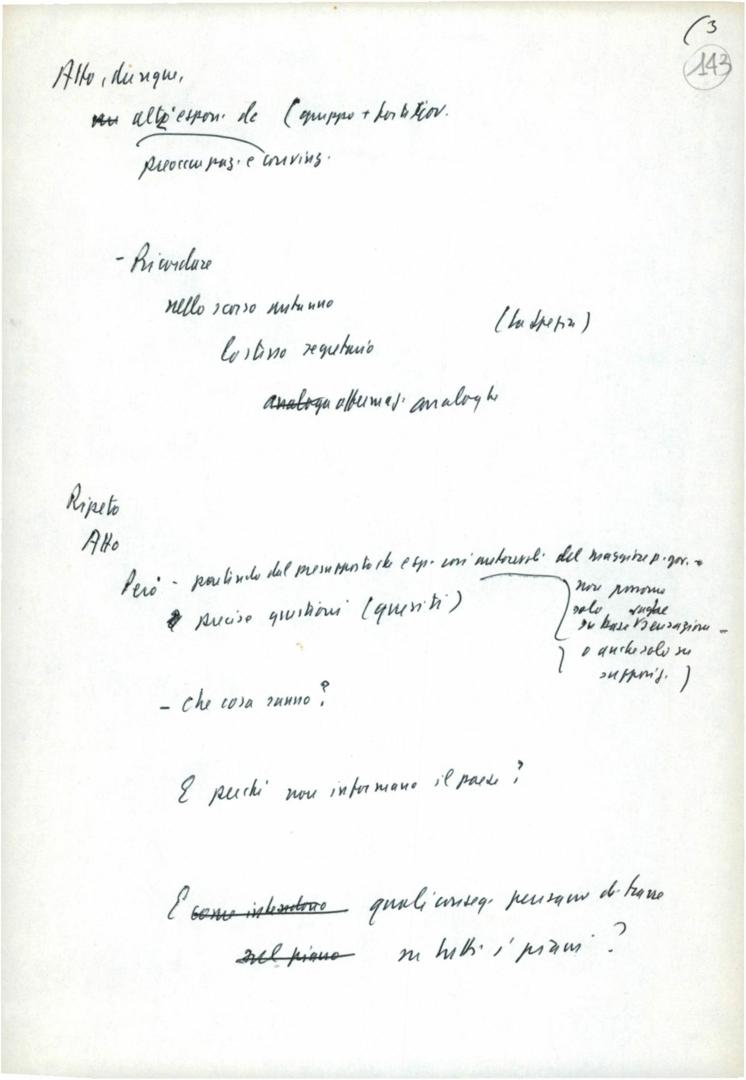 (3
143
Atto, dunque,
altri espon. dc (gruppo +
preoccupaz. e convinz.
- Ricordare
nello scorso autunno
(La Spezia)
lo stesso segretario
analoga affermaz. analoghe
Ripeto
Atto
Però - partendo dal presupposto che esp. così autorevoli del maggiore p. gov. -
non possono
precise questioni (quesiti)
solo
su base sensazioni -
o anche solo su
suppos. )
- Che cosa sanno?
E perché non informano il paese?
E come intendono quali conseg. pensano di trarre
nel piano su tutti i piani?